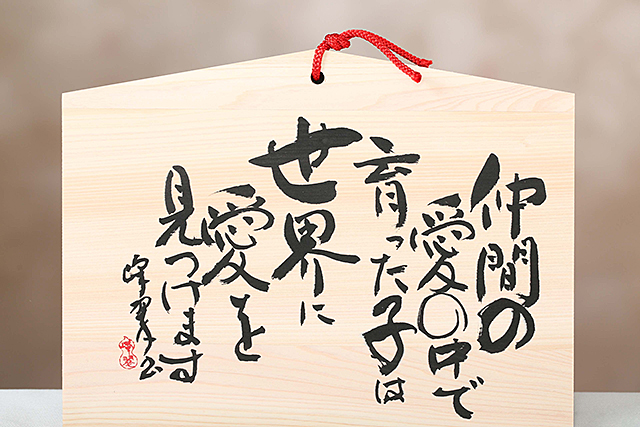 仲間の
愛〇中で
育った子は
世界に
愛を
見つけます